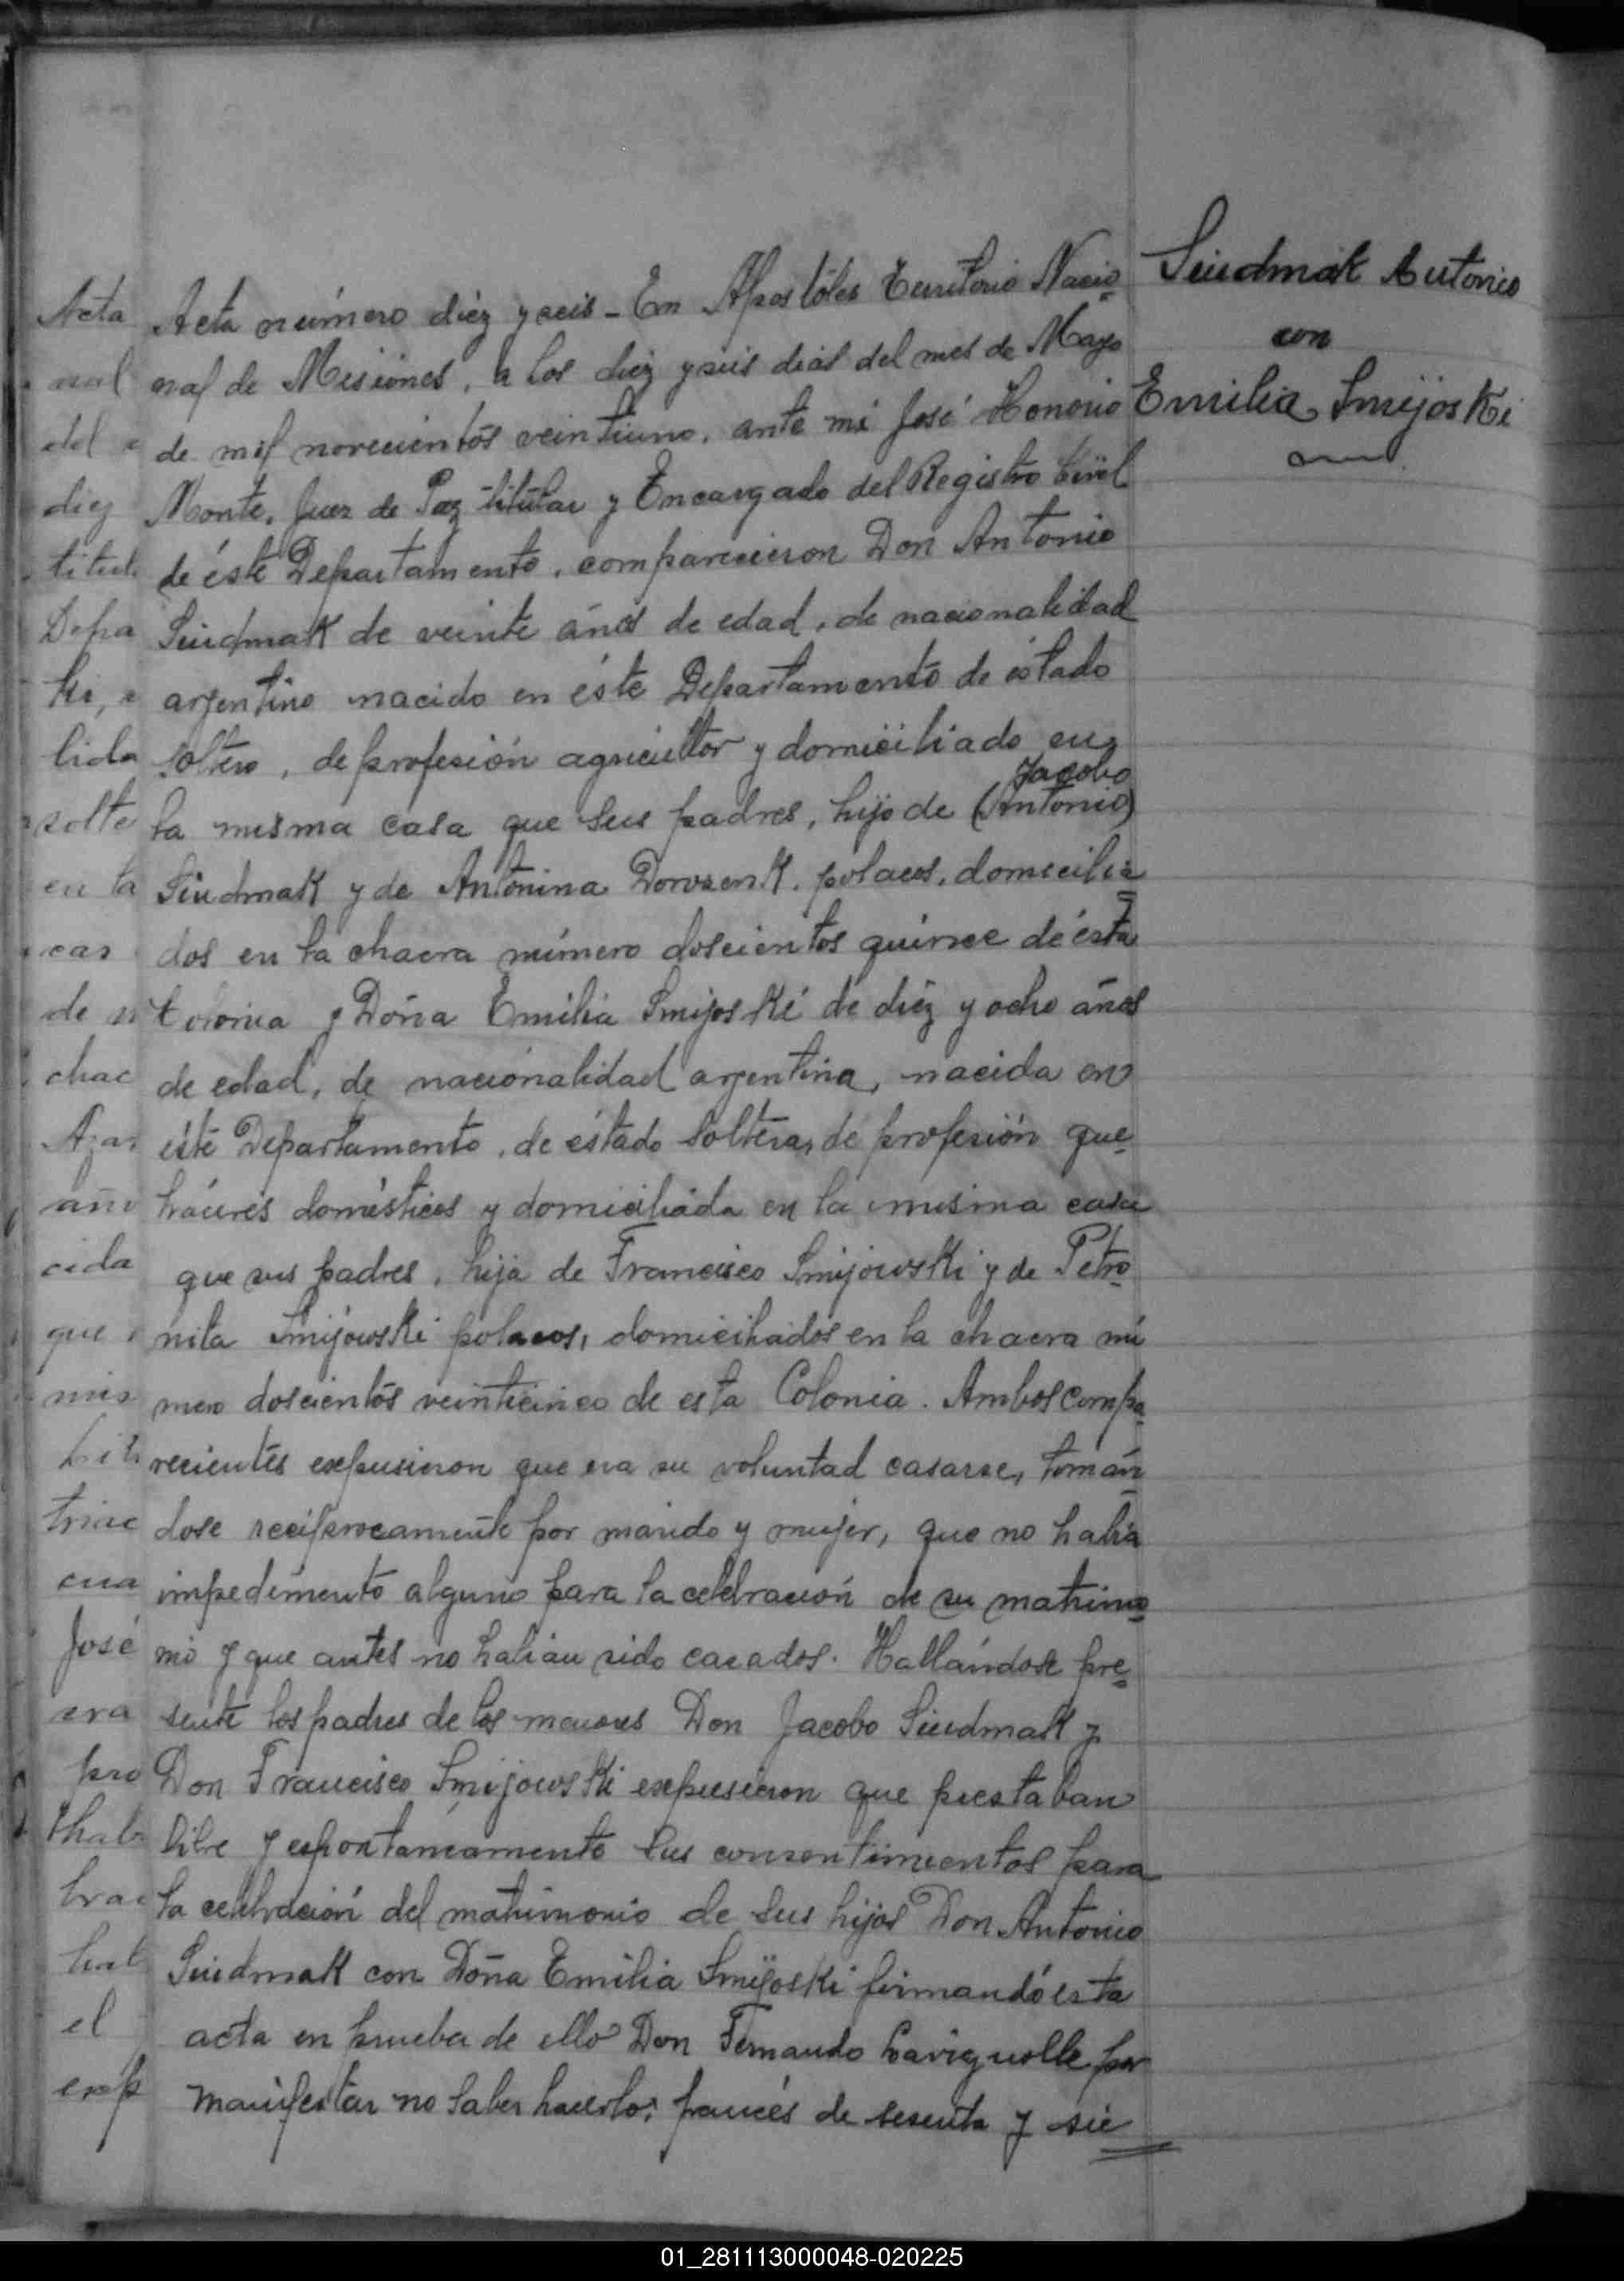 Siudmak Antonio
con
Emilia Smijoski
Acta número diéz y seis - En Apostóles Territorio Nacio-
nal de Misiones, a los diéz y seis dias del mes de Mayo
de mil novecientos veintiuno, ante mi José Honorio
Monte, Juez de Paz titular y Encargado del Registro Civil
de éste Departamento, comparecieron Don Antonio
Siudmak de veinte años de edad, de nacionalidad
argentino nacido en éste Departamento de éstado
soltero, de profesión agricultor y domiciliado en
Jacobo
la misma casa que sus padres, hijo de (Antonio)
Siudmak y de Antonina Dorozenk, polacos, domicilia-
dos en la chacra número doscientos quince de ésta
Colonia y Doña Emilia Smijoski de diéz y ocho años
de edad, de nacionalidad argentina, nacida en
éste Departamento, de éstado soltera, de profesión que-
haceres domésticos y domiciliada en la misma casa
que sus padres, hija de Francisco Smijowski y de Petro-
nila Smijowski polacos, domiciliados en la chacra nú
mero doscientos veinticinco de esta Colonia. Ambos compa-
recientes expusieron que era su voluntad casarse, tomán-
dose reciprocamente por marido y mujer, que no habia
impedimento alguno para la celebración de su matrimo-
nio y que antes no habian sido casados. Hallándose pre-
sente los padres de los menores Don Jacobo Siudmak y
Don Francisco Smijowski expusieron que prestaban
libre y espontaneamente sus consentimientos para
la celebración del matrimonio de sus hijos Don Antonio
Siudmak con Doña Emilia Smijoski firmando ésta
acta en prueba de ello Don Fernando Lavignolle por
manifestar no saber hacerlo, francés de sesenta y sie
Acta
nal
del
diez
titul
Depa
ki,
lida
solte
en la
cas
de n
chac
Azar
año
cida
que
mis
triac
cua
José
era
pro
hab
brac
el
exp
01_281113000048-020225